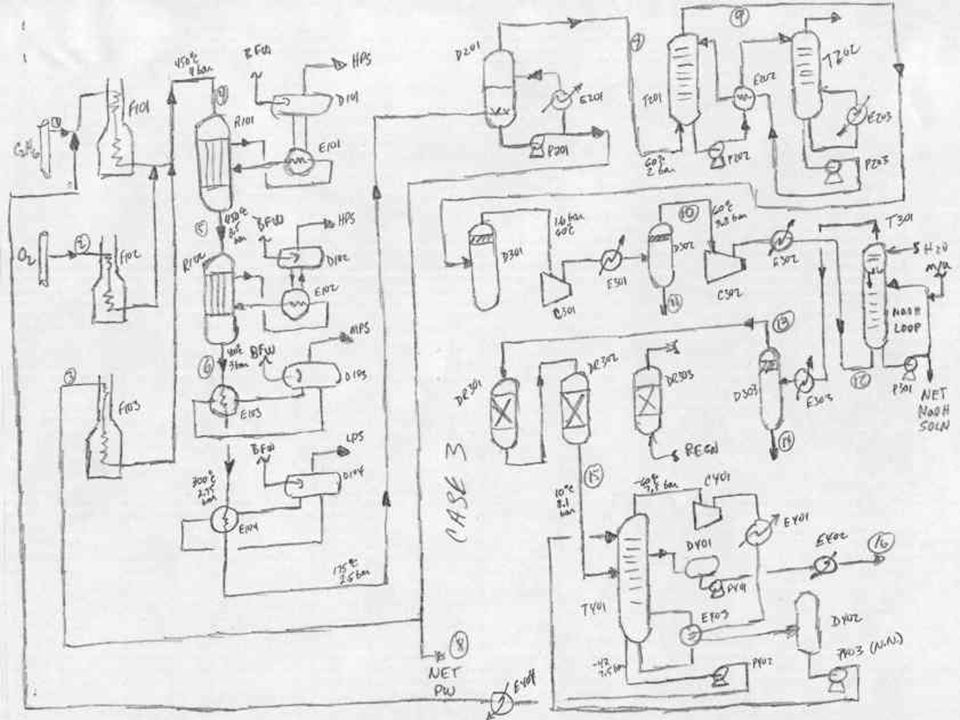 450°C
4 bar
F101
C2H6
1
O2
2
F102
3
F103
4
R101
BFW
HPS
D101
E101
5
R102
BFW
HPS
D102
E102
6
BFW
MPS
D103
E103
300°C
2.75
bar
BFW
LPS
D104
E104
175°C
2.5 bar
D201
E201
P201
60°C
2 bar
T201
P202
9
E202
T202
E203
P203
D301
1.6 bar
60°C
C301
E301
10
D302
11
60°C
C302
E302
T301
H2O
m/u
NaOH
LOOP
P301
NET
NaOH
SOLN
12
13
D303
E303
14
DR301
DR302
DR303
REGN
CASE 3
15
10°C
8.1
bar
T401
C401
D401
P401
E401
E402
16
E403
D402
P402
P403 (N.N.)
8
NET
PW
E404